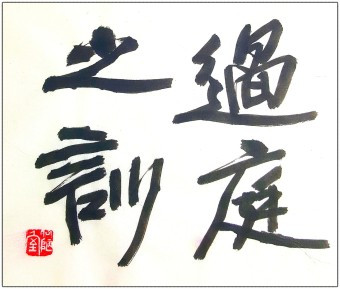 過庭
之訓